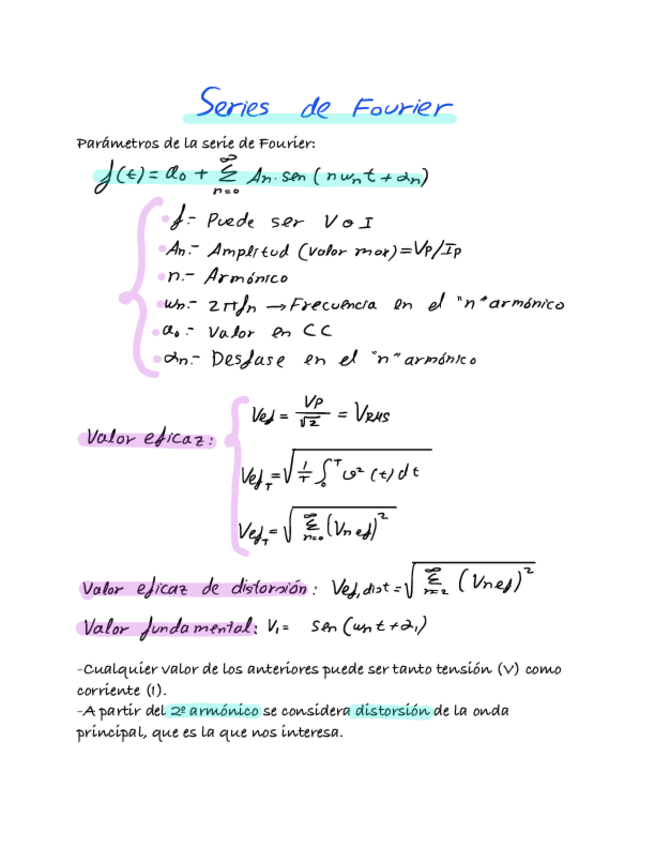 Series de Fourier
Parámetros de la serie de Fourier:
f(t) = a₀ + ∞Σn=0 An · sen (n wn t + αn)
f.- Puede ser V o I
An.- Amplitud (valor max) = Vp/Ip
n.- Armónico
wn.- 2πfn → Frecuencia en el "n" armónico
a₀.- Valor en CC
αn.- Desfase en el "n" armónico
Valor eficaz:
Vef = Vp/√2 = VRMS
VefT = √(1/T ∫₀ᵀ v² (t) dt)
VefT = √(∞Σn=0 (Vn ef)²)
Valor eficaz de distorsión: Vef,dist = √(∞Σn=2 (Vnef)²)
Valor fundamental: V₁ = sen (wn t + α₁)
-Cualquier valor de los anteriores puede ser tanto tensión (V) como
corriente (I).
-A partir del 2º armónico se considera distorsión de la onda
principal, que es la que nos interesa.